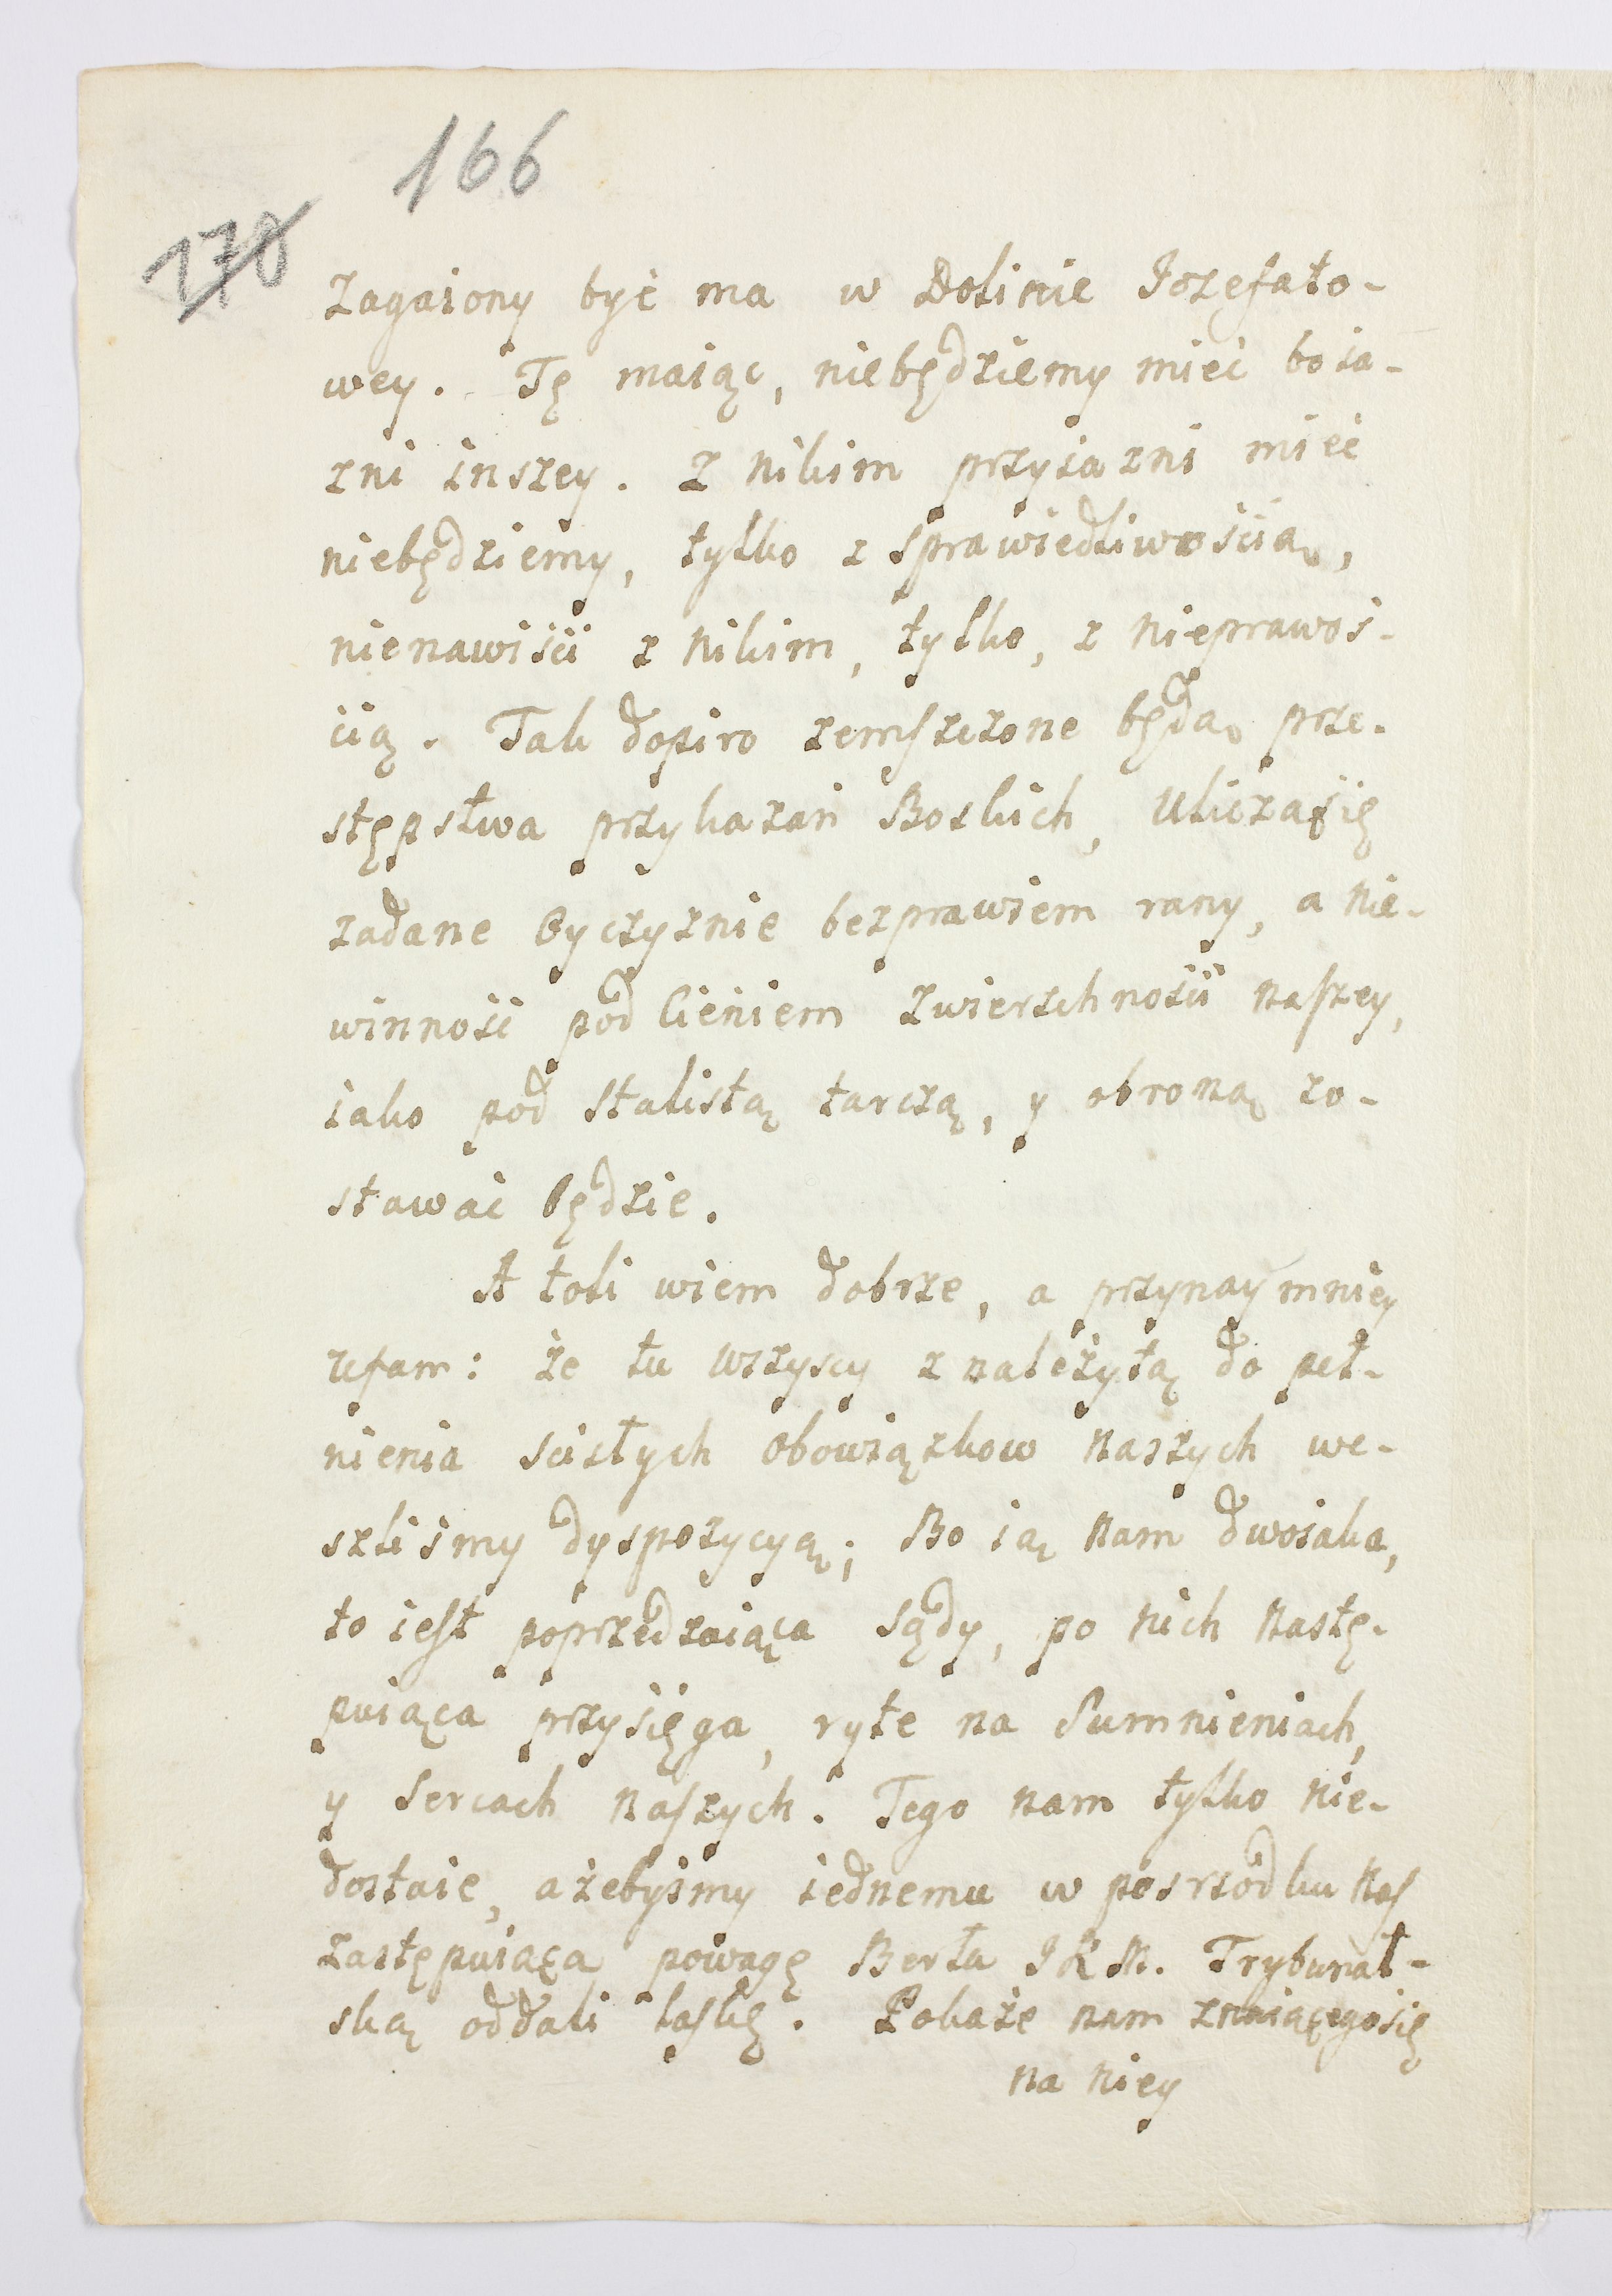 166
178
zagaiony być ma w Dolinie Iozefato-
wey. Tę maiąc, niebędziemy mieć boia-
zni inszey. Z nikim przyiazni mieć
niebędziemy, tylko z sprawiedliwością,
nienawiści z nikim, tylko, z nieprawoś-
cią. Tak dopiro zemszczone będą prze-
stępstwa przykazań Boskich, Uliczasię
zadane Oyczyznie bezprawiem rany, a nie-
winność pod Cieniem zwierzchności naszey,
iako pod stalistą tarczą, y obroną zo-
stawać będzie.
A toli wiem dobrze, a przynaymniey
ufam: że tu wszyscy z należytą do peł-
nienia scisłych obowiązkow naszych we-
szliśmy dyspozycyą; Bo są nam dwoiaka,
to iest poprzedzaiąca sądy, po nich nastę-
puiąca przysięga, ryte na Sumnieniach,
y Sercach naszych. Tego nam tylko nie-
dostaie, ażebyśmy iednemu w posrzodku nas
zastępuiącą powagę Berła JKM. Trybunal-
ską oddali laskę. Pokaże nam znaiącegosię
na niey